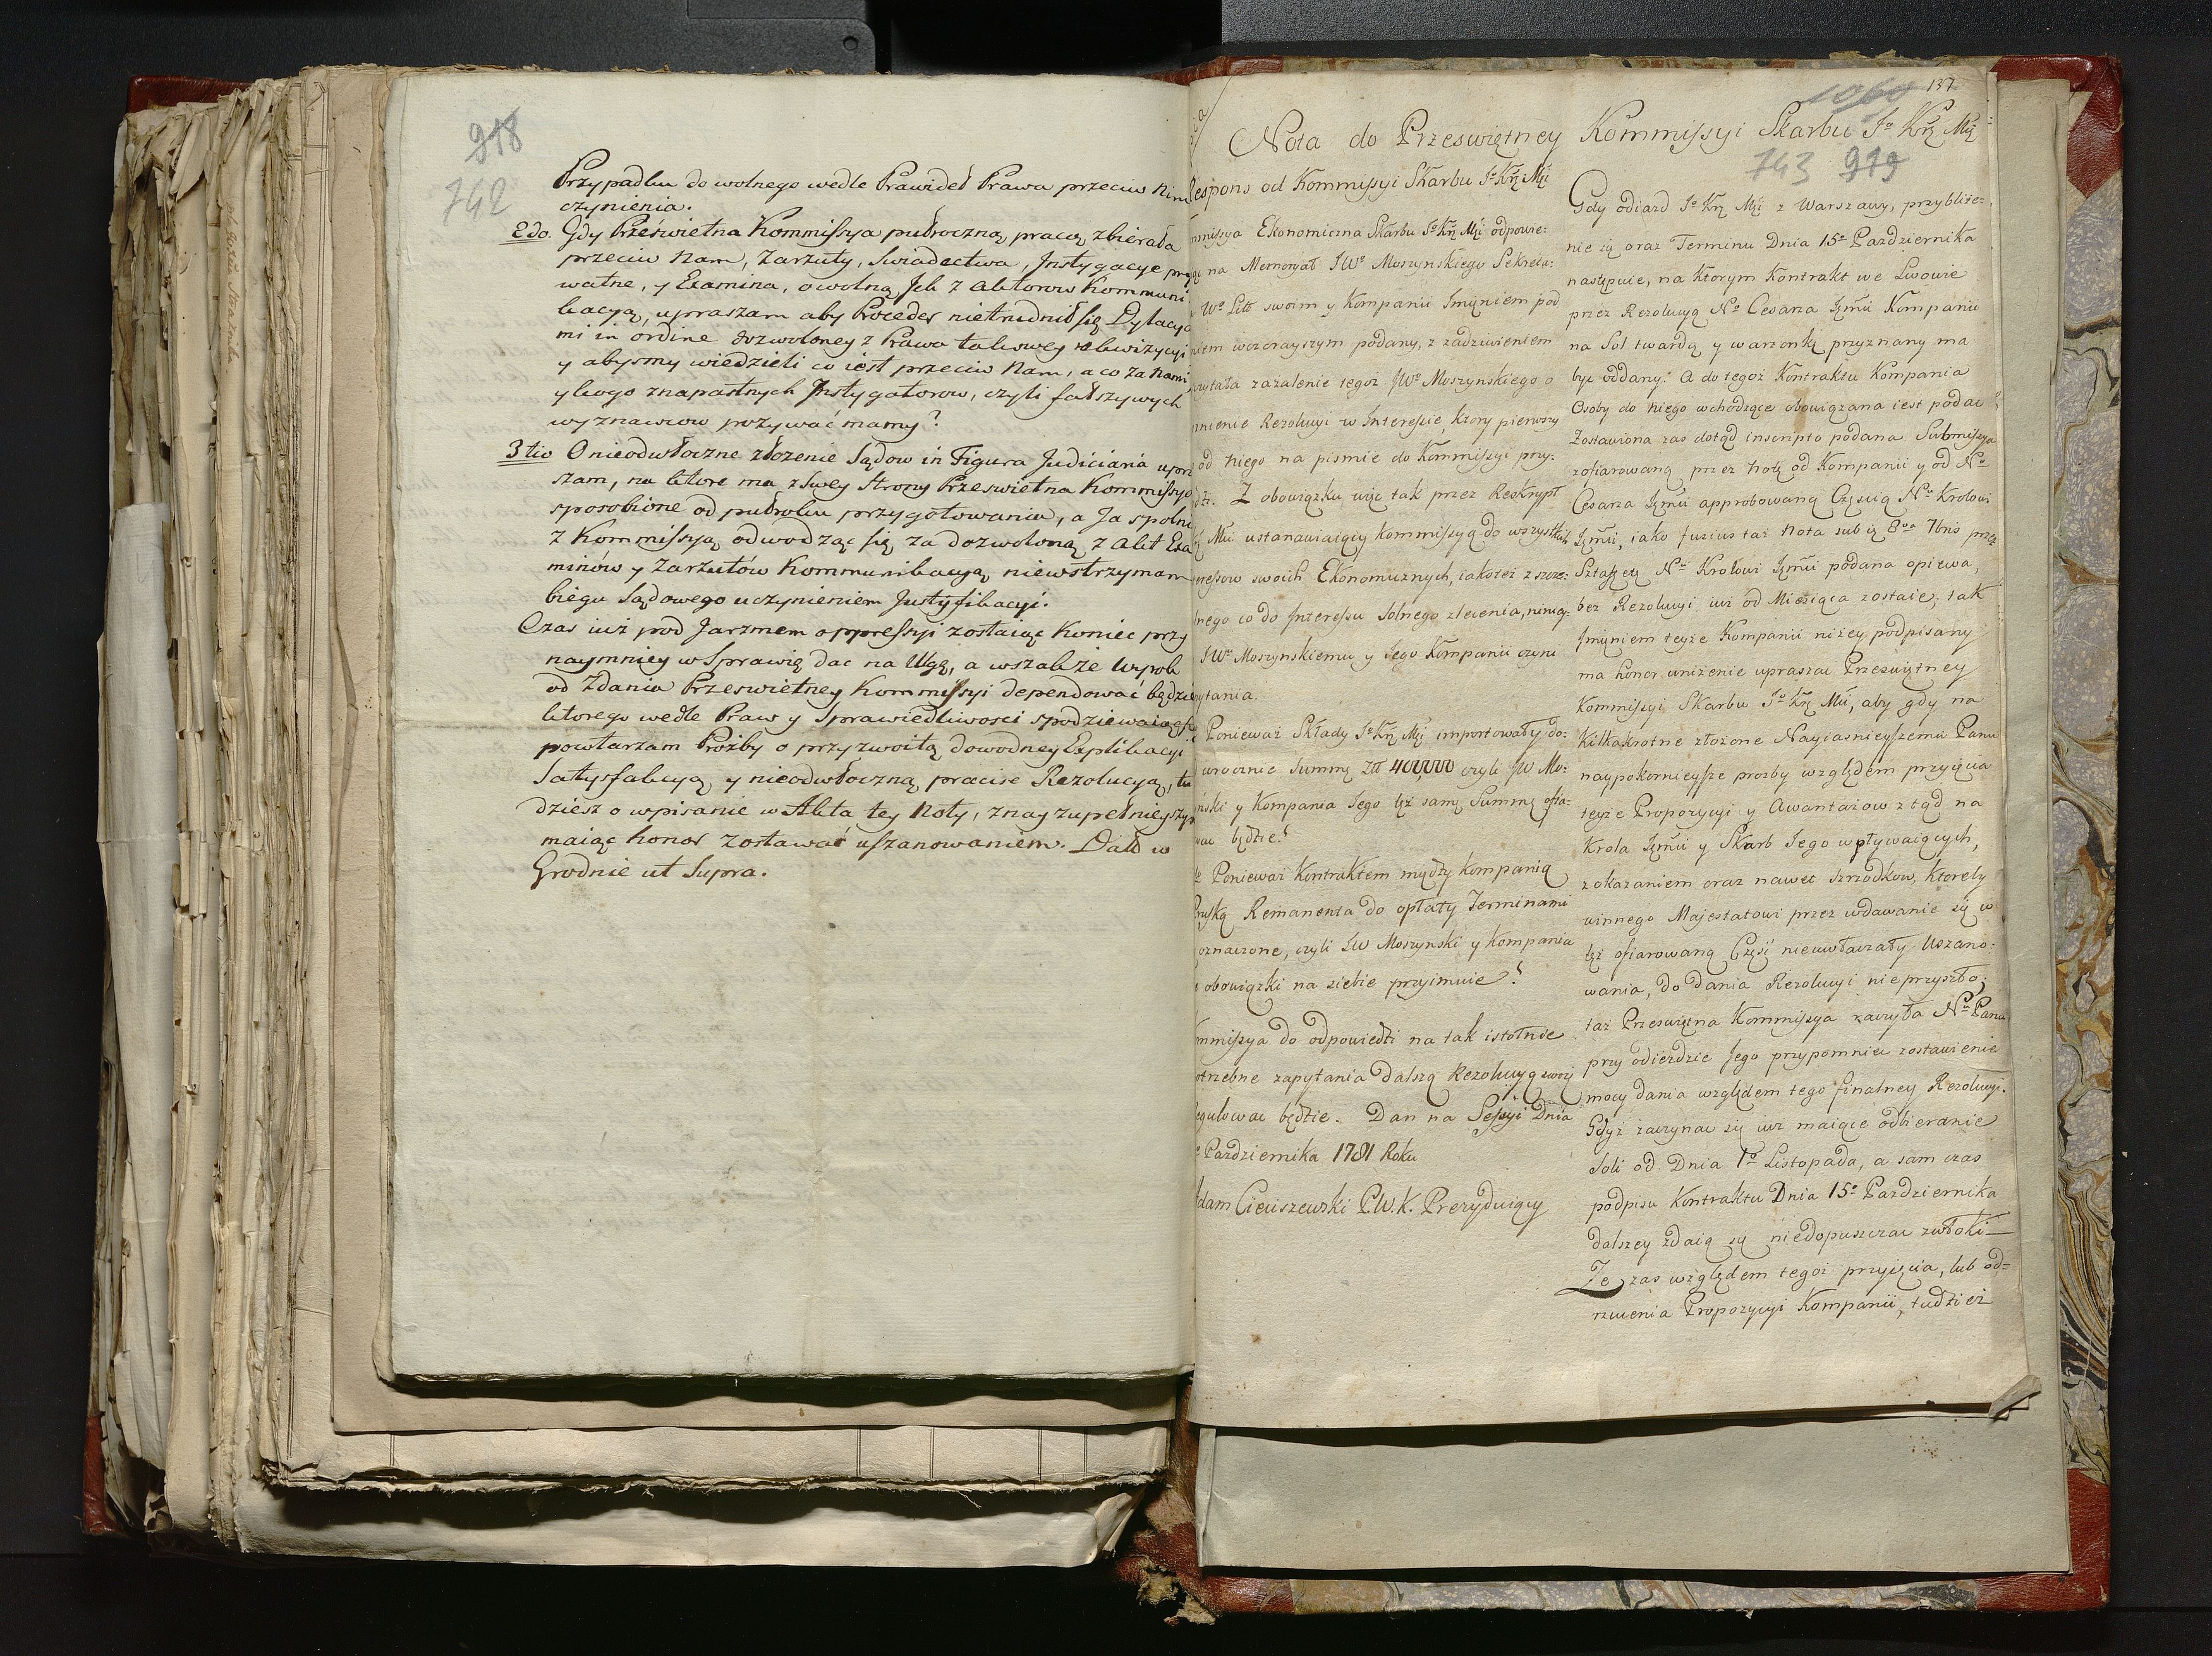 918
742
Przypadku do wolnego wedle Prawideł Prawa przeciw
czynienia.
2do. Gdy Prześwietna Kommissya pułroczną pracą zbierała
przeciw Nam, Zarzuty, Swiadectwa, Instygacye pry
watne, y Examina, owolną Ich z Aktorow Kommuni
kacyą, upraszam aby Proceder nietrudnił się Dylacya
mi in ordine dozwoloney z Prawa takowey rekwizycyi
y abysmy wiedzieli co iest przeciw Nam, a co za Nami
y kogo znapastnych Instygatorow, czyli fałszywych
wyznawcow pozywać mamy?
3tio O nieodwłoczne złożenie Sądow in Figura Judiciaria upra
szam, na ktore ma z swey Strony Prześwietna Kommissya
sposobione od pułroku przygotowania, a Ja spolnie
z Kommissyą odwodząc się za dozwoloną z Akt Exa
minów y Zarzutów Kommunikacyą niewstrzymam
biegu Sądowego uczynieniem Justyfikacyi.
Czas iuż pod Jarzmem oppressyi zostaiąc koniec przy
naymniey w Sprawie dac na Ulgę, a wszakże wyrok
od Zdania Prześwietney Kommissyi dependować będzie
ktorego wedle Praw y Sprawiedliwosci spodziewaiąc się
powtarzam Prożby o przyzwoitą dowodney Explikacyi
Satysfakcyą y nieodwłoczną præcise Rezolucyą, tu
dziesz o wpisanie w Akta tey Noty, z nayzupełnieyszym
maiąc honor zostawać uszanowaniem. Datt w
Grodnie ut Supra.
137
1060
743 919
Nota do Przeswiętney Kommissyi Skarbu Jo Krz Mći
Respons od Kommissyi Skarbu Jo Krz Mći
mmissya Ekonomiczna Skarbu Jo Krz Mći odpowie:
na Memoryał JWo Moszynskiego Sekreta:
Wo Litt swoim y Kompanii Imięniem pod
niem wczorayszym podany, z zadziwieniem
czytała zażalenie tegoż JWo Moszynskiego o
nienie Rezolucyi w Interessie, ktory pierwszy
od niego na pismie do Kommissyi przy:
Z obowiązku więc tak przez Reskrypt
Mci ustanawiaiący Kommissyą do wszystkich
eressow swoich Ekonomicznych, iakoteż z szcze:
lnego co do Interessu Solnego zlecenia, niniey:
JWo Moszynskiemu y Iego Kompanii czyni
pytania.
Ponieważ Składy Jo Krz Mći importowały do:
urocznie Summę Złł 400,000 czyli JW Mo:
nski y Kompania Iego też samę Summę ofia:
wac będzie?
Ponieważ Kontraktem między Kompanią
Pruską Remanenta do opłaty Terminami
oznaczone, czyli JW Moszynski y Kompania
obowiązki na siebie przyimuie?
mmissya do odpowiedzi na tak istotnie
otrzebne zapytania dalszą Rezolucyą swoię
egulowac będzie. Dan na Sessyi Dnia
Pazdziernika 1781 Roku
Adam Cieciszewski P.W.K. Prezyduiący
Gdy odiazd Jo Krz Mći z Warszawy, przybliże:
nie się oraz Terminu Dnia 15o Pazdziernika
następuie, na ktorym Kontrakt we Lwowie
przez Rezolucyą No Cesarza Jmći Kompanii
na Sol twardą y warzonkę przyznany ma
być oddany: A do tegoż Kontraktu Kompania
Osoby do niego wchodzące obowiązana iest podac
Zostawiona zas dotąd inscripto podana Submissya
zofiarowaną przez Notę od Kompanii y od No
Cesarza Jmći approbowaną Częścią No Krolowi
Jmći, iako fusius taż Nota sub 8va 7bris przez
Sztafetę No Krolowi Jmći podana opiewa,
bez Rezolucyi iuż od Miesiąca zostaie; tak
Imięniem teyże Kompanii niżey podpisany
ma honor uniżenie upraszac Przeswiętney
Kommissyi Skarbu Jo Krz Mći, aby gdy na
Kilkakrotne złożone Nayiasnieyszemu Panu
naypokornieysze prozby względem przyięcia
teyże Propozycyi y Awantażow z tąd na
Krola Jmći y Skarb Iego wpływaiących,
z okazaniem oraz nawet szrzodkow, ktoreby
winnego Majestatowi przez wdawanie się w
tęż ofiarowaną Część nieuwłaczały Uszano:
wania, do dania Rezolucyi nieprzyszło;
taż Przeswiętna Kommissya raczyła No Panu
przy odiezdzie Jego przypomniec zostawienie
mocy dania względem tego finalney Rezolucyi.
Gdyż zaczynac się iuż maiące odbieranie
Soli od Dnia 1o Listopada, a sam czas
podpisu Kontraktu Dnia 15o Pazdziernika
dalszey zdaią się niedopuszczac zwłoki—
Że zas względem tegoż przyięcia, lub od=
rzucenia Propozycyi Kompanii, tudzież